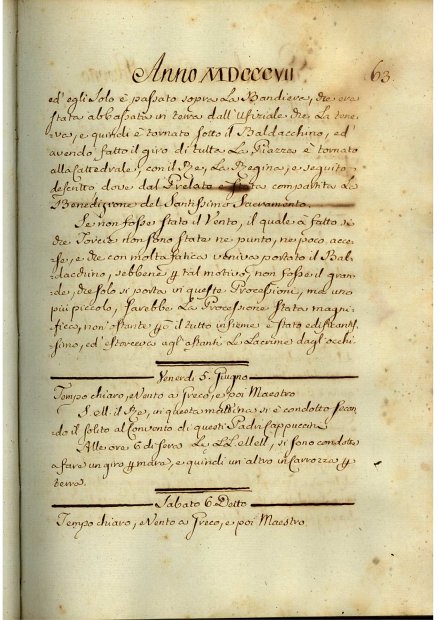 Anno MDCCCVII
63.
ed' egli Solo è passato sopra La Bandiera, che era
stata abbassata in terra dall' Ufiziale che La tene-
va, e quindi è tornato sotto il Baldacchino, ed'
avendo fatto il giro di tutta La Piazza è tornato
alla Cattedrale, con il Re, La Regina, e seguito
descritto dove dal Prelato è stata compartita La
Benedizione del Santissimo Sacramento.
Se non fosse stato il Vento, il quale à fatto sì
che Torcie non sono state ne punto, ne poco acce-
se, e che con molta fatica veniva portato il Bal-
dacchino, sebbene p tal motivo, non fosse il gran-
de, che solo si porta in queste Processioni, ma uno
più piccolo, sarebbe La Processione stata magni-
fica, non' ostante p̃ò il tutto insieme è stato edificantis-
simo, ed' estorceva agl' astanti Le Lacrime dagl' occhi.
Venerdì 5. Giugno
Tempo chiaro, e Vento a Greco, e poi Maestro
S. M. il Re, in questa mattina si è condotto secon-
do il solito al Convento di questi Padri Cappuccini
Alle ore 6 di sera Le LL. MM. si sono condotte
a fare un giro p mare, e quindi un' altro in Carrozza p
terra.
Sabato 6 Detto
Tempo chiaro, e Vento a Greco, e poi Maestro